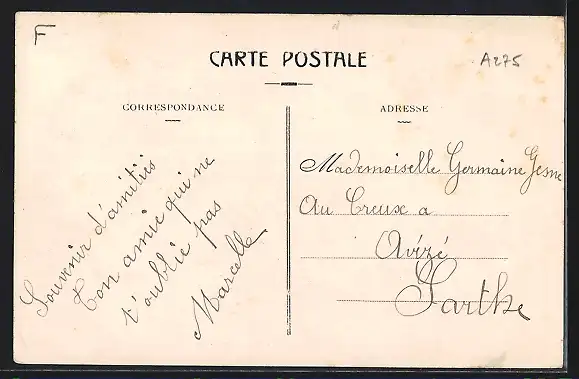 F
CARTE POSTALE
A275
CORRESPONDANCE
Souvenir d'amitiis
Ton amie qui ne
t'oublie pas
Marcelle
ADRESSE
Mademoiselle Germaine Gesne
Au Creux a
Avézé
Sarthe